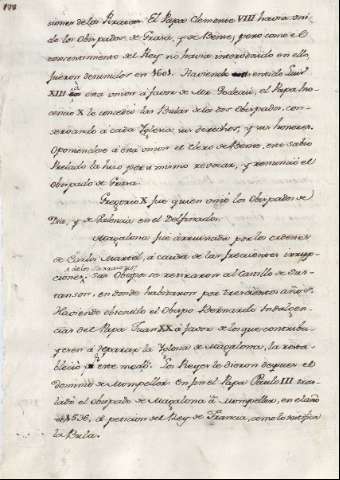 198
siones de los Piratas. El Papa Clemente VIII havia uni-
do los Obispados de Grasa, y de Vence, pero como el
consentimiento del Rey no havia intervenido en ello
fueron desunidos en 1601. Haviendo atentido Luis
XIII à esta union à favor de Mr. Godeau, el Papa Ino-
cencio X le concedió las Bulas de los dos Obispados, con-
servando à cada Iglesia sus derechos, y sus honores.
Oponiendose à esta union el Clero de Vence, este sabio
Prelado la hizo por si mismo revocar, y renunció el
obispado de Grasa.
Gregorio X fue quien unió los Obispados de
Die, y de Valencia en el Delfinado.
Magalona fue arruinada por las ordenes
de Carlos Martel, à causa de las frecuentes irrup-
ciones de los Sarracenos. Sus Obispos se retiraron al Castillo de Sus-
tanson, en donde habitaron por trescientos años.
Haviendo obtenido el Obispo Bernardo Indulgen-
cias del Papa Juan XX à favor de los que contribu-
yesen à reparar la Iglesia de Magalona, la resta-
bleció por este medio. Los Reyes le dieron despues el
dominio de Mompeller. En fin el Papa Paulo III tras-
ladó el obispado de Magalona à Mompeller, en el año
1536, à peticion del Rey de Francia, como lo testifica
la Bula.